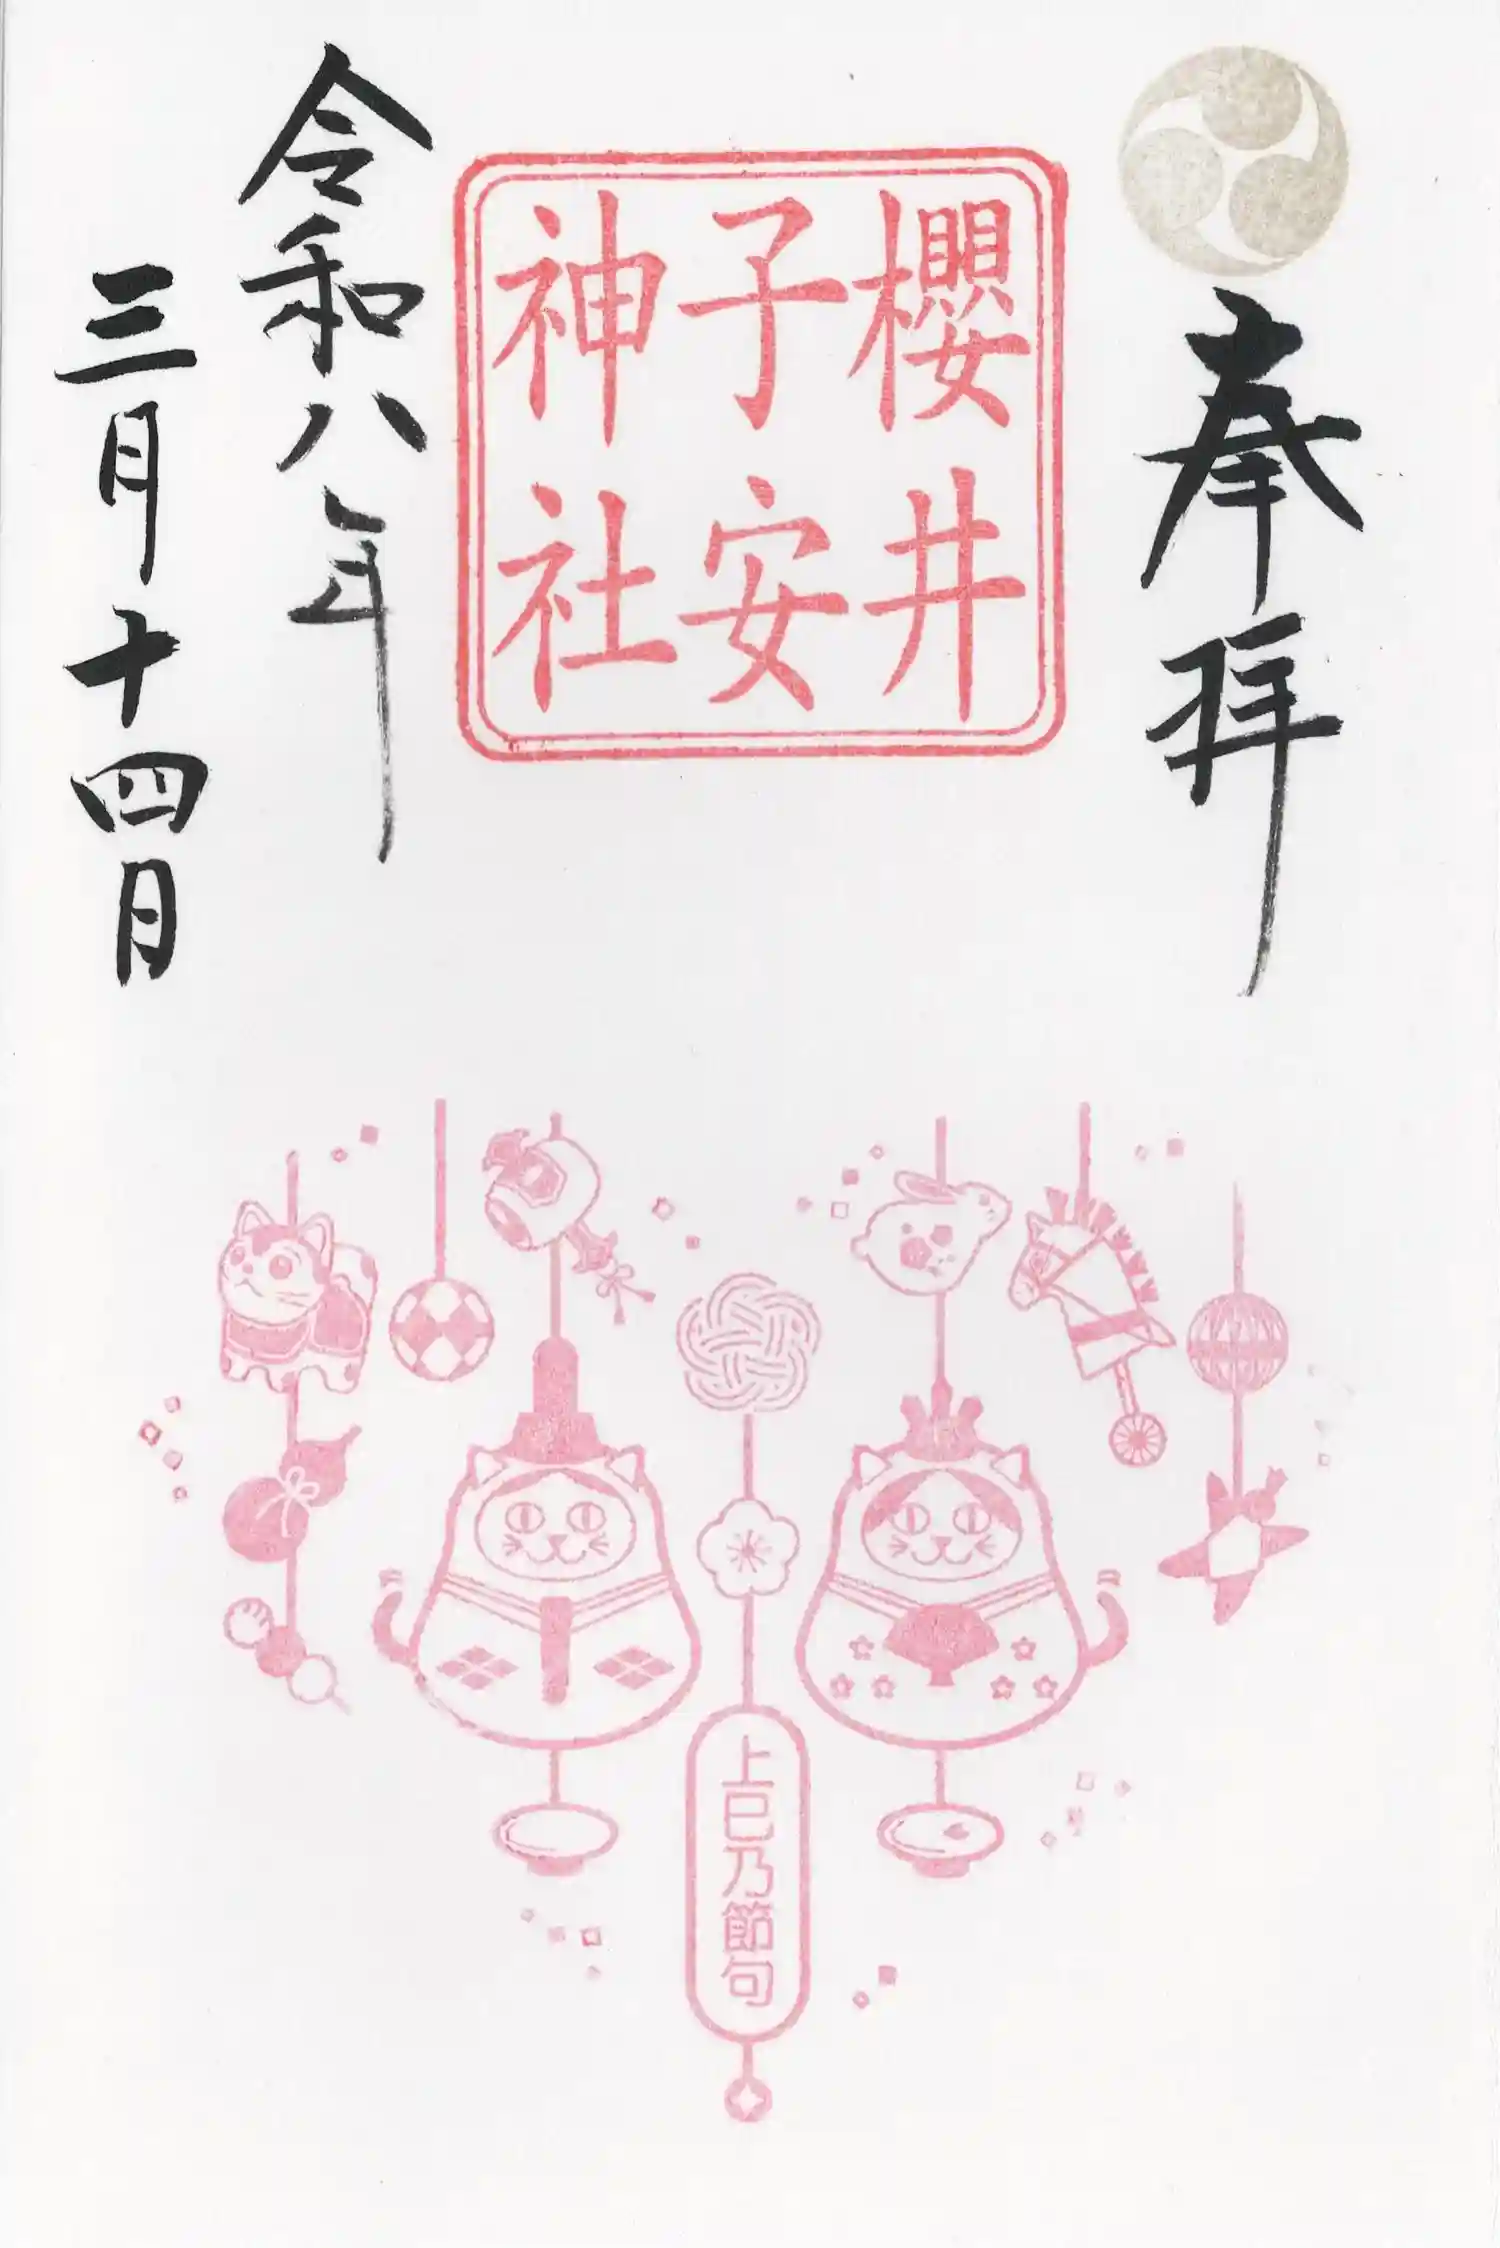 奉拝
櫻井
子安
神社
令和八年
三月十四日
上巳乃節句